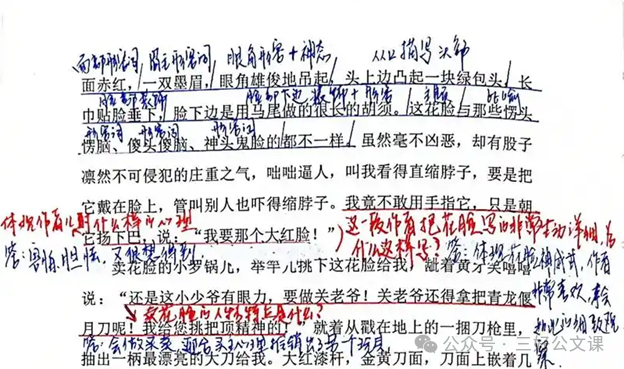 面部形容词 眉毛形容词 眼角形容+神态
面赤红，一双墨眉，眼角雄俊地吊起，头上边凸起一块绿包头，长
巾贴脸垂下，脸下边是用马尾做的很长的胡须。这花脸与那些愣头
形容词 形容词 形容词
愣脑、傻头傻脑、神头鬼脸的都不一样。虽然毫不凶恶，却有股子
凛然不可侵犯的庄重之气，咄咄逼人，叫我看得直缩脖子，要是把
它戴在脸上，管叫别人也吓得缩脖子。我竟不敢用手指它，只是朝
体现作者儿时什么样的心理
它扬下巴，说：“我要那个大红脸！”
这一段作者把花脸写的非常生动详细，为
什么这样写？
答：害怕、胆怯，又很想得到
答：体现花脸很威武，作者
卖花脸的小罗锅儿，举竿儿挑下这花脸给我，龇着黄牙笑嘻嘻
非常喜欢，才会
说：“还是这小少爷有眼力，要做关老爷！关老爷还得拿把青龙偃
如此的细致观
卖花脸的人物特点是什么？
月刀呢！我给您挑把顶精神的！”就着从戳在地上的一捆刀枪里，
察
答：会做买卖
抽出一柄最漂亮的大刀给我。大红漆杆，金黄刀面，刀面上嵌着几
公众号·三好公文课